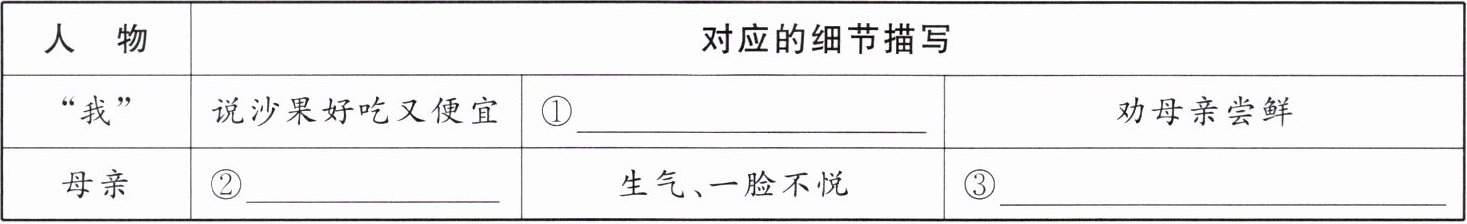 人 物 对应的细节描写
“我” 说沙果好吃又便宜 ①____________ 劝母亲尝鲜
母亲 ②____________ 生气、一脸不悦 ③____________